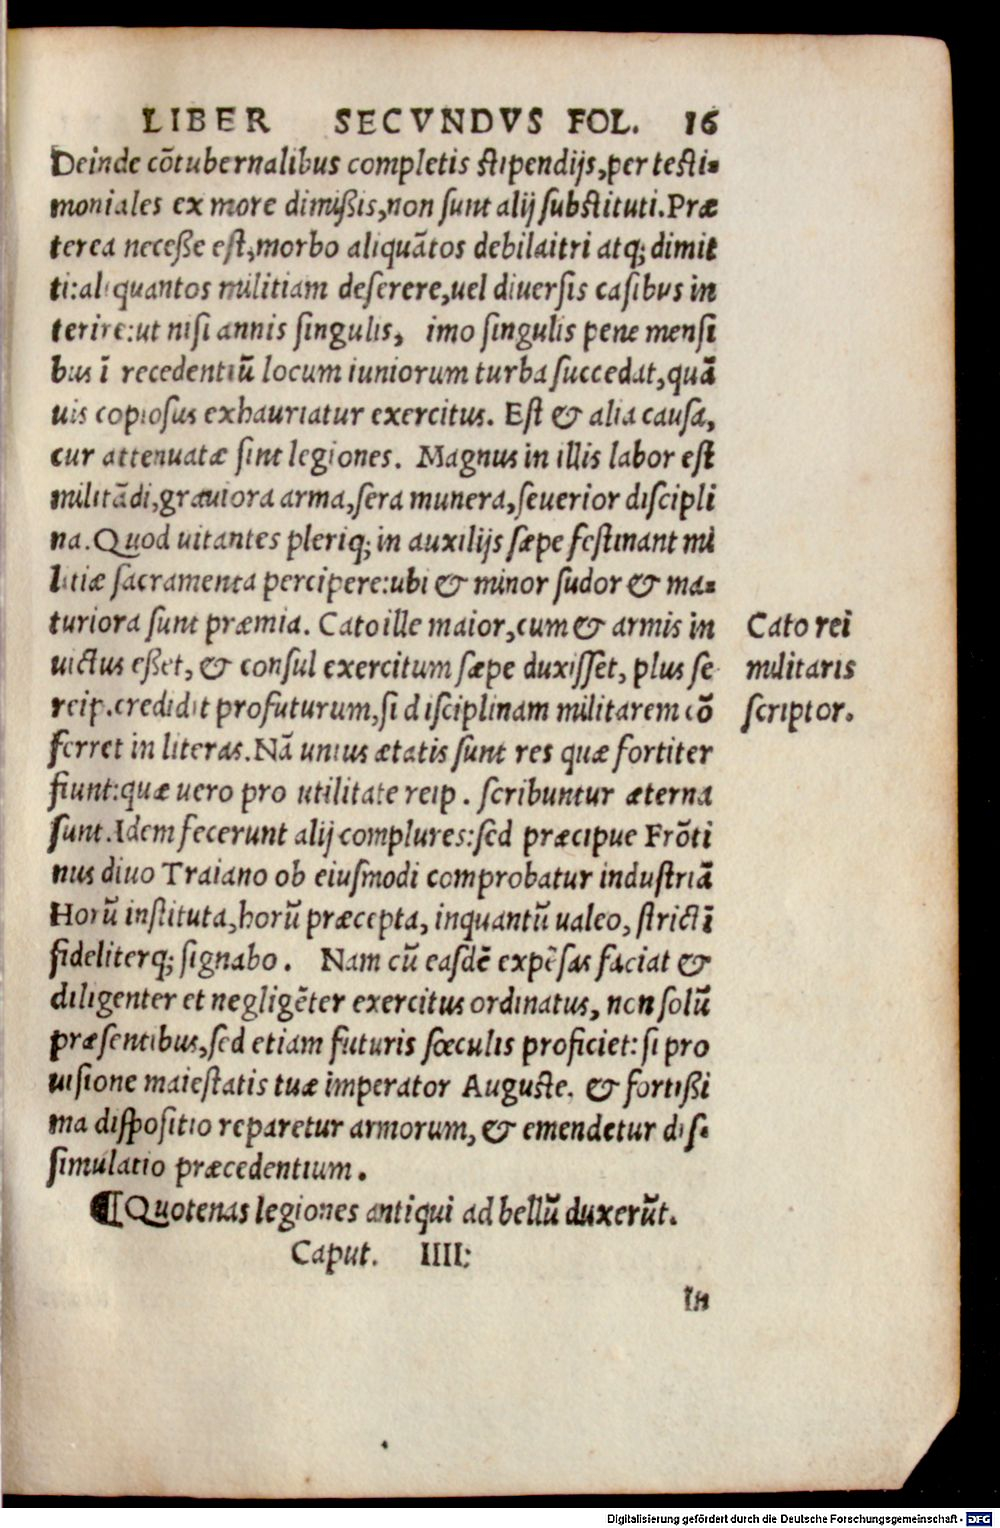 LIBER SECVNDVS FOL. 16
Deinde cōtubernalibus completis stipendijs, per testi-
moniales ex more dimißis, non sunt alij substituti. Præ
terea neceße est, morbo aliquātos debilaitri atq; dimit
ti: aliquantos militiam deserere, uel diuersis casibus in
terire: ut nisi annis singulis, imo singulis pene mensi
bus ī recedentiū locum iuniorum turba succedat, quā
uis copiosus exhauriatur exercitus. Est & alia causa,
cur attenuatæ sint legiones. Magnus in illis labor est
militādi, grauiora arma, sera munera, seuerior discipli
na. Quod uitantes pleriq; in auxilijs sæpe festinant mi
litiæ sacramenta percipere: ubi & minor sudor & ma-
turiora sunt præmia. Cato ille maior, cum & armis in
uictus eßet, & consul exercitum sæpe duxisset, plus se
reip. credidit profuturum, si disciplinam militarem cō
ferret in literas. Nā unius ætatis sunt res quæ fortiter
fiunt: quæ uero pro utilitate reip. scribuntur æterna
sunt. Idem fecerunt alij complures: sed præcipue Frōti
nus diuo Traiano ob eiusmodi comprobatur industriā
Horū instituta, horū præcepta, inquantū ualeo, strictī
fideliterq; signabo. Nam cū easdē expēsas faciat &
diligenter et negligēter exercitus ordinatus, non solū
præsentibus, sed etiam futuris sœculis proficiet: si pro
uisione maiestatis tuæ imperator Auguste. & fortißi
ma dispositio reparetur armorum, & emendetur dis-
simulatio præcedentium.
¶Quotenas legiones antiqui ad bellū duxerūt.
Caput. IIII:
In
Cato rei
militaris
scriptor.
Digitalisierung gefördert durch die Deutsche Forschungsgemeinschaft - DFG